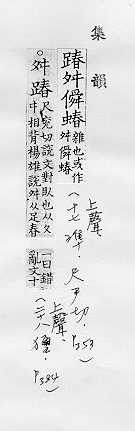 集韻
踳舛僢蝽雜也或作舛僢蝽
上聲
(十七準,尺尹切,P353
舛踳尺兗切說文對臥也从夊㐄相背楊雄說舛从足春
一曰錯亂文十
上聲
(二十八𤣗,P384)